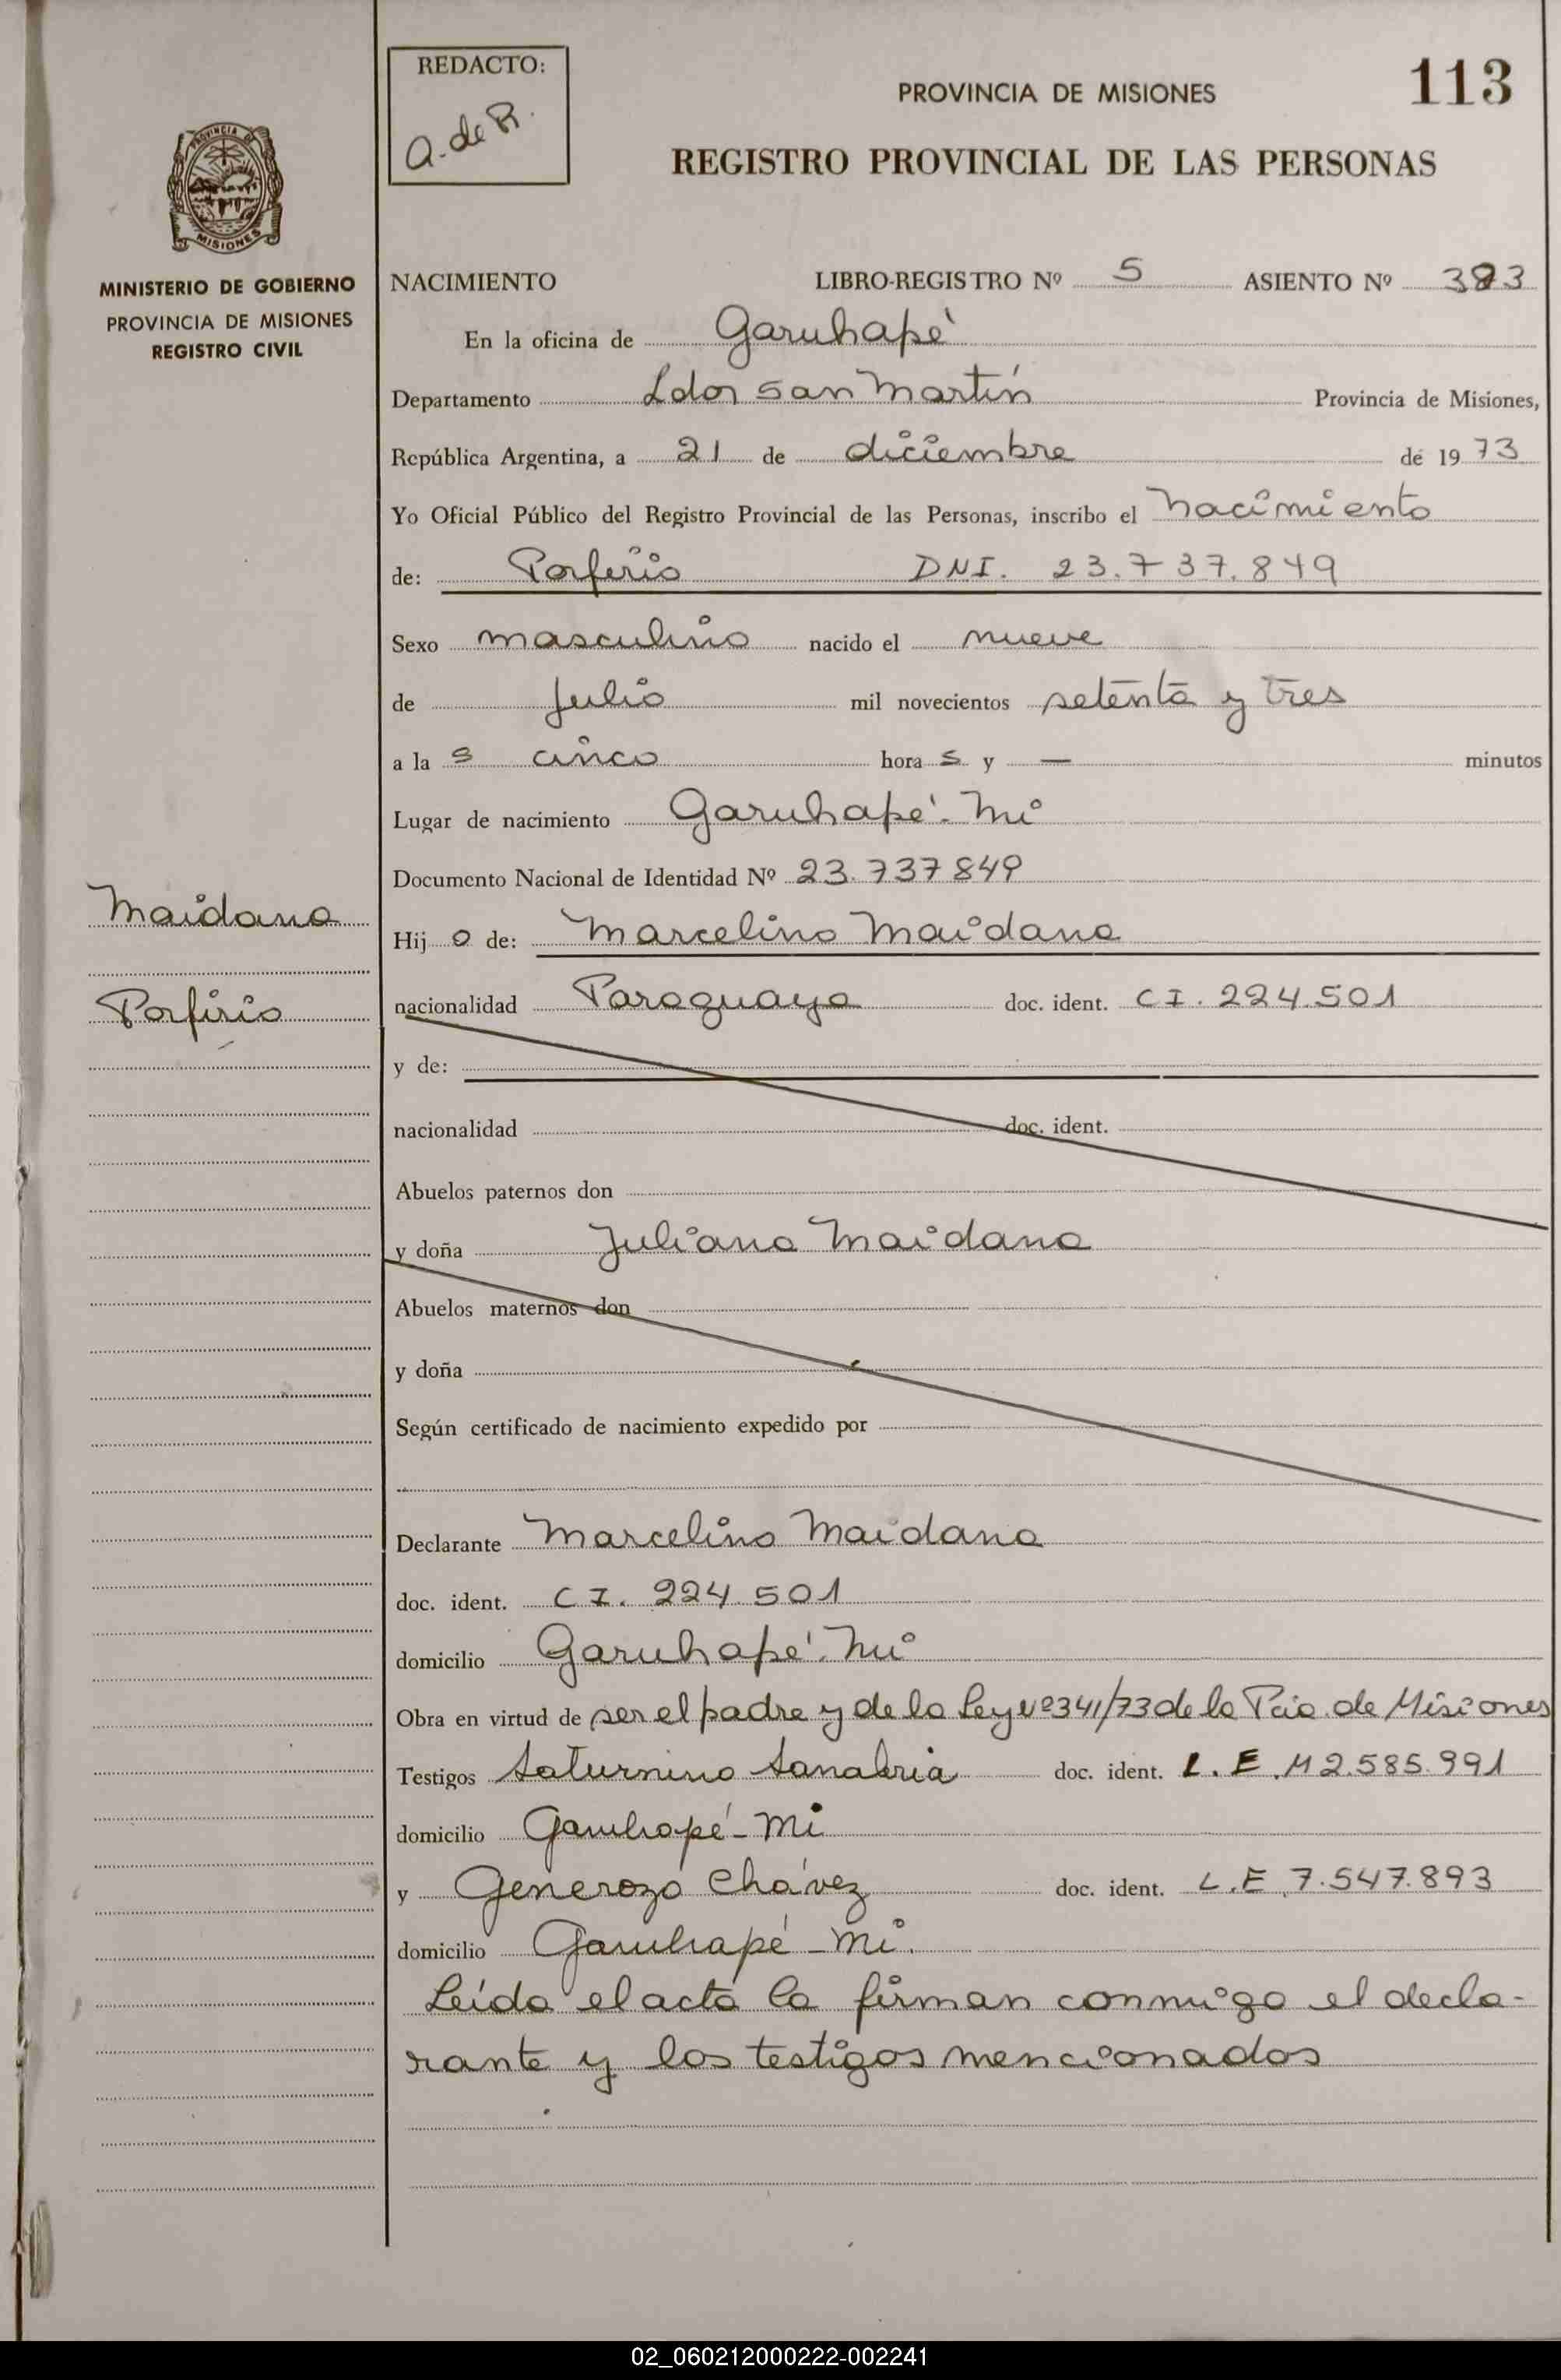 REDACTO:
A. de R.
PROVINCIA DE MISIONES
113
REGISTRO PROVINCIAL DE LAS PERSONAS
PROVINCIA DE
MISIONES
MINISTERIO DE GOBIERNO
PROVINCIA DE MISIONES
REGISTRO CIVIL
NACIMIENTO LIBRO-REGISTRO Nº 5 ASIENTO Nº
En la oficina de Garuhapé
Departamento Ldor San Martín Provincia de Misiones,
República Argentina, a 21 de diciembre de 1973
Yo Oficial Público del Registro Provincial de las Personas, inscribo el nacimiento
de: Porferio DNI. 23.737.849
Sexo masculino nacido el nueve
de Julio mil novecientos setenta y tres
a la s cinco hora s y — minutos
Lugar de nacimiento Garuhapé. Mi
Documento Nacional de Identidad Nº 23.737849
Maidana
Porfirio
Hij o de: Marcelino Maidana
nacionalidad Paraguaya doc. ident. CI. 224.501
y de:
nacionalidad doc. ident.
Abuelos paternos don
y doña Juliana Maidana
Abuelos maternos don
y doña
Según certificado de nacimiento expedido por
Declarante Marcelino Maidana
doc. ident. C I. 224.501
domicilio Garuhapé. Mi
Obra en virtud de ser el padre y de la Ley Nº 341/73 de la Pcia. de Misiones
Testigos Saturnino Sanabria doc. ident. L. E. M 2.585.991
domicilio Garuhapé - Mi
y Generozo Chávez doc. ident. L.E. 7.547.893
domicilio Garuhapé - Mi.
Leída el acta la firman conmigo el decla-
rante y los testigos mencionados
02_060212000222-002241